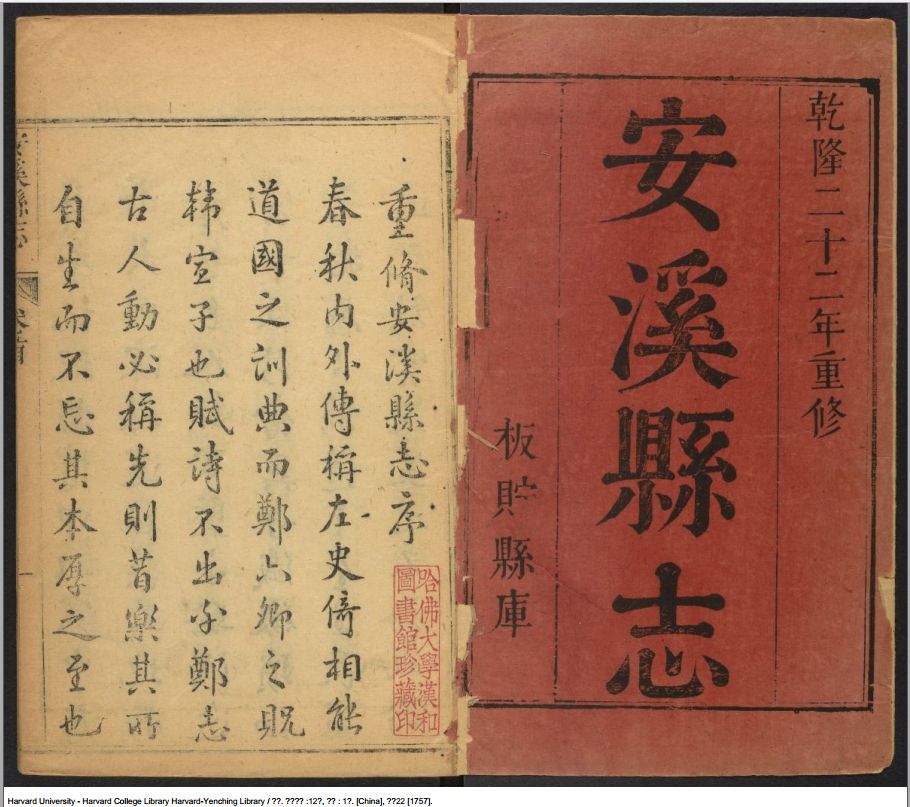 乾隆二十二年重修
安溪縣志
板貯縣庫
重脩安溪縣志序
春秋內外傳稱左史倚相能
道國之訓典而鄭六卿之貺
韓宣子也賦詩不出乎鄭志
古人動必稱先則昔樂其所
自生而不忘其本厚之至也
哈佛大學漢和
圖書館珍藏印
安溪縣志 卷首
Harvard University - Harvard College Library Harvard-Yenching Library / ??. ???? :12?, ?? : 1?. [China], ??22 [1757].